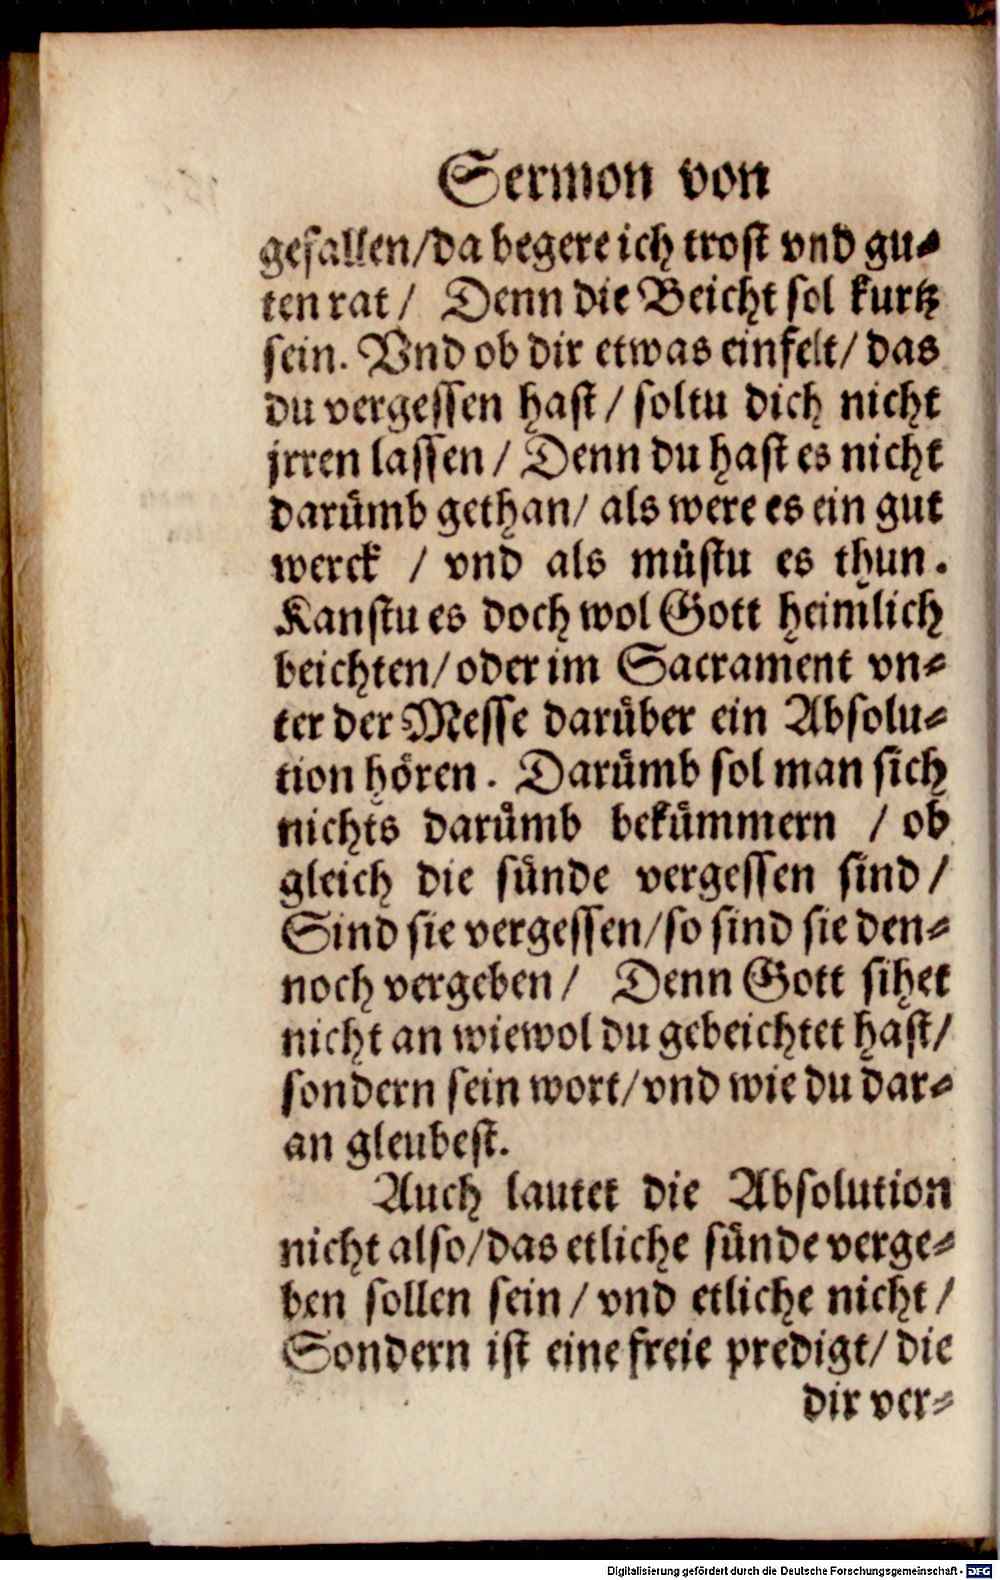 Sermon von
gefallen/da begere ich trost vnd gu⸗
ten rat/ Denn die Beicht sol kurtz
sein. Vnd ob dir etwas einfelt/ das
du vergessen hast/ soltu dich nicht
jrren lassen/ Denn du hast es nicht
darümb gethan/ als were es ein gut
werck / vnd als müstu es thun.
Kanstu es doch wol Gott heimlich
beichten/ oder im Sacrament vn⸗
ter der Messe darüber ein Absolu⸗
tion hören. Darümb sol man sich
nichts darümb bekümmern / ob
gleich die sünde vergessen sind/
Sind sie vergessen/so sind sie den⸗
noch vergeben/ Denn Gott sihet
nicht an wiewol du gebeichtet hast/
sondern sein wort/vnd wie du dar⸗
an gleubest.
Auch lautet die Absolution
nicht also/das etliche sünde verge⸗
ben sollen sein/ vnd etliche nicht/
Sondern ist eine freie predigt/ die
dir ver⸗
Digitalisierung gefördert durch die Deutsche Forschungsgemeinschaft - DFG